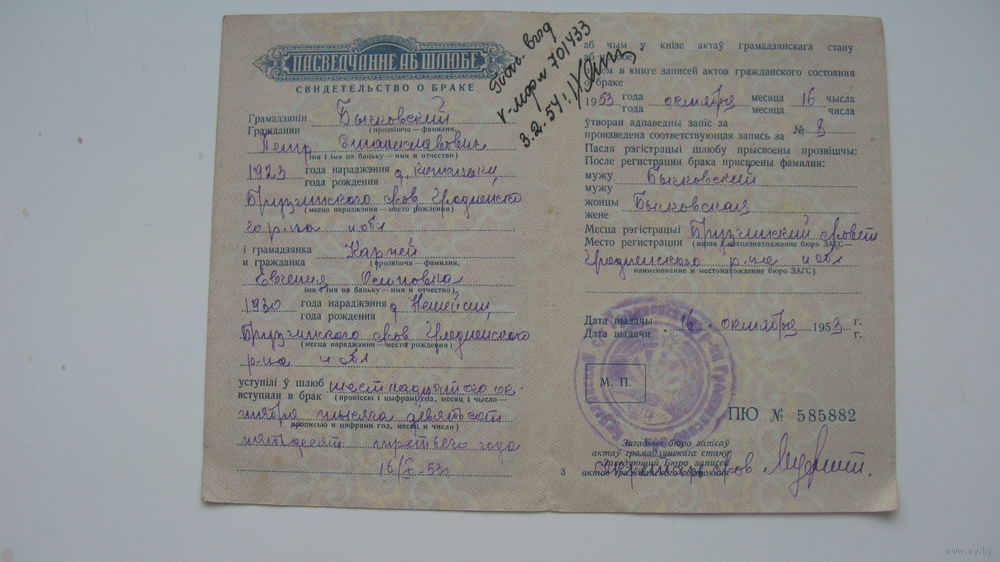 ПАСВЕДЧАННЕ АБ ШЛЮБЕ
СВИДЕТЕЛЬСТВО О БРАКЕ
Грамадзянін
Гражданин Быковский
(прозвішча — фамилия,
Петр Станиславович
імя і імя па бацьку — имя и отчество)
1923 года нараджэння
года рождения д.
Брузгинского сов. Гродненско
(месца нараджэння — место рождения)
го р-на и обл
і грамадзянка
и гражданка Карпей
(прозвішча — фамилия,
Евгения Осиповна
імя і імя па бацьку — имя и отчество)
1930 года нараджэння
года рождения д.
Брузгинского сов. Гродненского
(месца нараджэння — место рождения)
р-на и обл
уступілі ў шлюб
вступили в брак шестнадцатого ок-
(пропіссю і цыфрамі год, месяц і число —
тября тысяча девятьсот
прописью и цифрами год, месяц и число)
пятьдесят третьего года
16/X-53г
701433
3.2.54г.
аб чым у кнізе актаў грамадзянскага стану
аб шлюбе
о чем в книге записей актов гражданского состояния
о браке
1953 года октября месяца 16 чысла
года месяца числа
ўтворан адпаведны запіс за
произведена соответствующая запись за № 8
Пасля рэгістрацыі шлюбу прысвоены прозвішчы:
После регистрации брака присвоены фамилии:
мужу
мужу Быковский
жонцы
жене Быковская
Месца рэгістрацыі Брузгинский совет
Место регистрации (назва і месцазнаходжанне бюро ЗАГС —
Гродненского р-на и обл
наименование и местонахождение бюро ЗАГС)
Дата выдачы
Дата выдачи 16 октября 1953 г.
г.
М. П.
ПЮ № 585882
Загадчык бюро запісаў
актаў грамадзянскага стану
Заведующий Бюро записей
актов гражданского состояния
3
www.ay.by